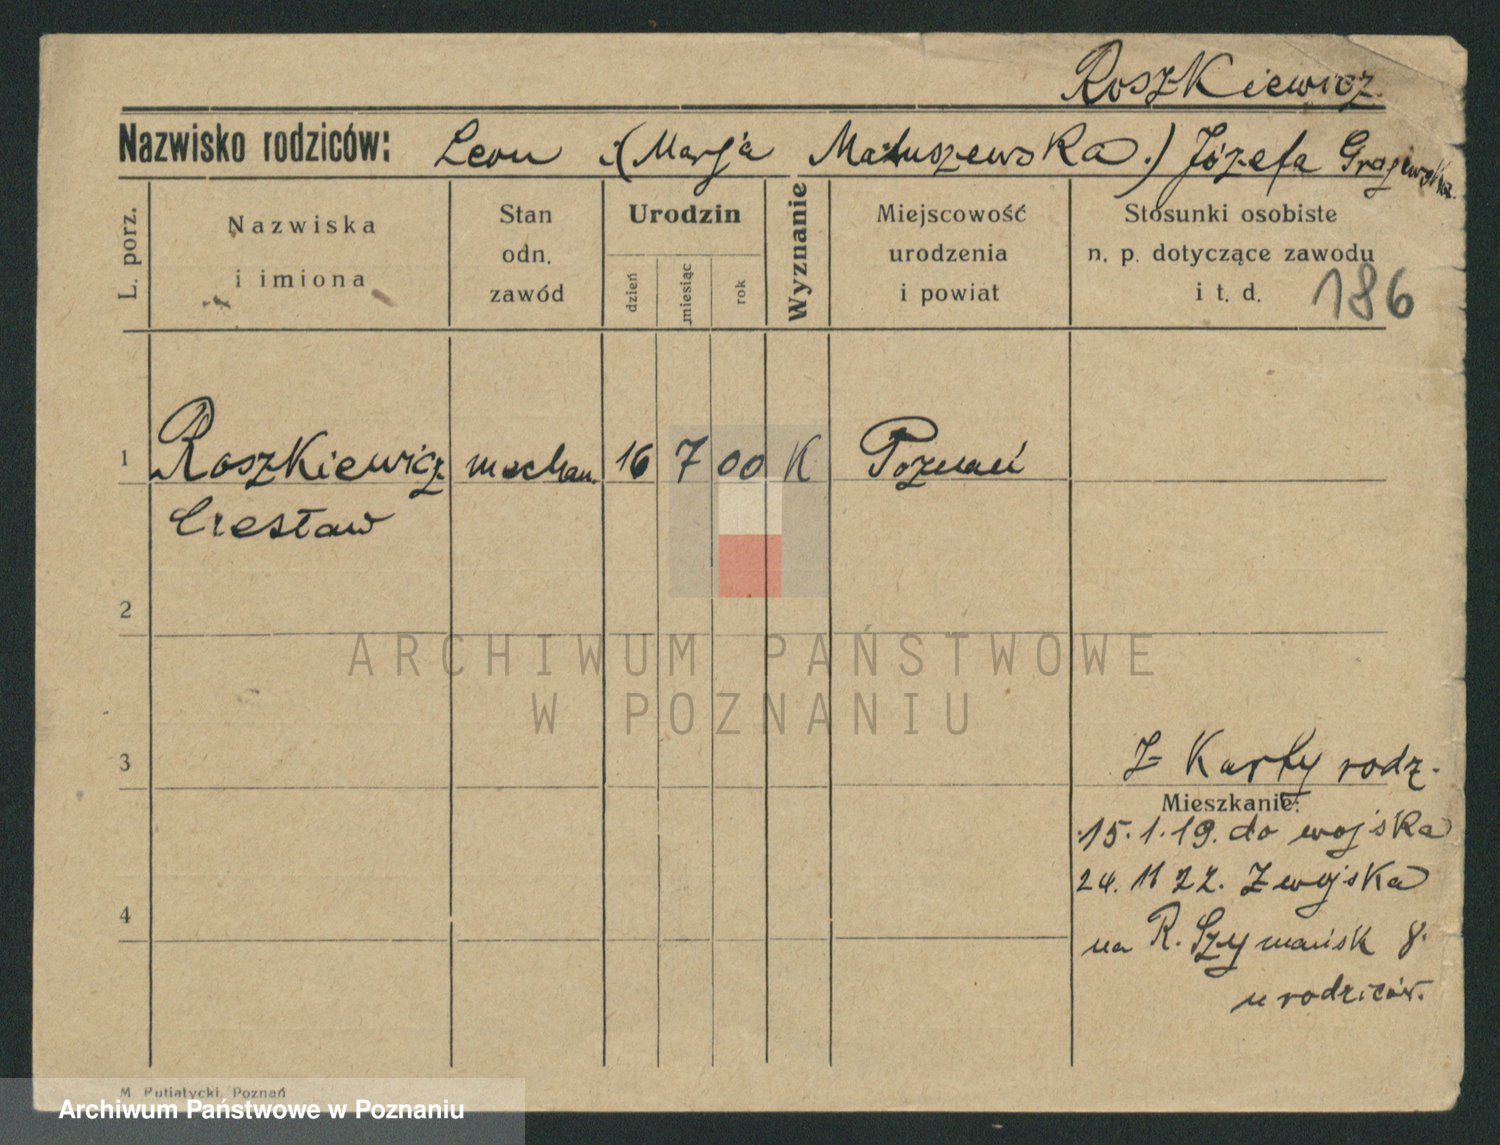 Roszkiewicz.
Nazwisko rodziców: Leon (Marja Matuszewska.) Józefa Grajewska.
L. porz.
Nazwiska
i imiona
Stan
odn.
zawód
Urodzin
dzień
miesiąc
rok
Wyznanie
Miejscowość
urodzenia
i powiat
Stosunki osobiste
n. p. dotyczące zawodu
i t. d.
186
1 Roszkiewicz mechan. 16 7 00 K Poznań
Czesław
2
3
Z Karty rodz.
Mieszkanie:
15.1.19. do wojska
24. 11 22. Z wojska
na R. Szymańsk 8.
u rodziców.
4
M. Putiatycki, Poznań
ARCHIWUM PAŃSTWOWE
W POZNANIU
Archiwum Państwowe w Poznaniu